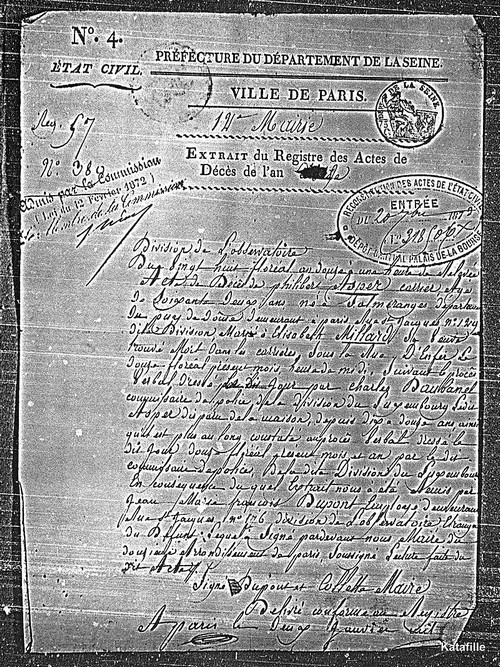 N°. 4.
ÉTAT CIVIL.
PRÉFECTURE DU DÉPARTEMENT DE LA SEINE.
VILLE DE PARIS.
12e Mairie
Reg. 57
N° 388
EXTRAIT du Registre des Actes de
Décès de l'an
Admis par la Commission
(Loi du 12 Février 1872)
Le Membre de la Commission
RECONSTITUTION DES ACTES DE L'ÉTAT CIVIL
ENTRÉE
DU 20
PALAIS DE LA BOURSE
Division de L'observatoire
Du vingt huit floréal an douze a une heure de
Acte de Décès de philibert Asper carrier agé
de Soixante Deux ans né à departement
du puy de Dome demeurant a paris rue St Jacques N°
dite Division Marié à Elisabeth Millard
trouvé Mort Dans les carrieres Sous la Rue D'Enfer le
douze floréal present mois, heure de midi, Suivant le procès
Verbal dressé Jour par charles Daubanel
commissaire de police de la Division du Luxembourg
Asper disparu de la maison, depuis dix a douze ans ainsi
qu'il est plus au long constaté au procès Verbal dressé le
dit Jour douze floréal present mois et an par le dit
commissaire de police De la dite Division du Luxembourg
En consequence du quel L'extrait nous a été Remis par
Jean Marie françois Dupont Employé demeurant
Rue St Jacques, n° 176, division de L'observatoire
du Defunt, lequel a Signé pardevant nous Maire du
douzieme arrondissement de paris, soussigné Lecture faite du
dit Acte
Signé Dupont et Collette Maire
Delivré conforme au Registre
A paris le
Katafille